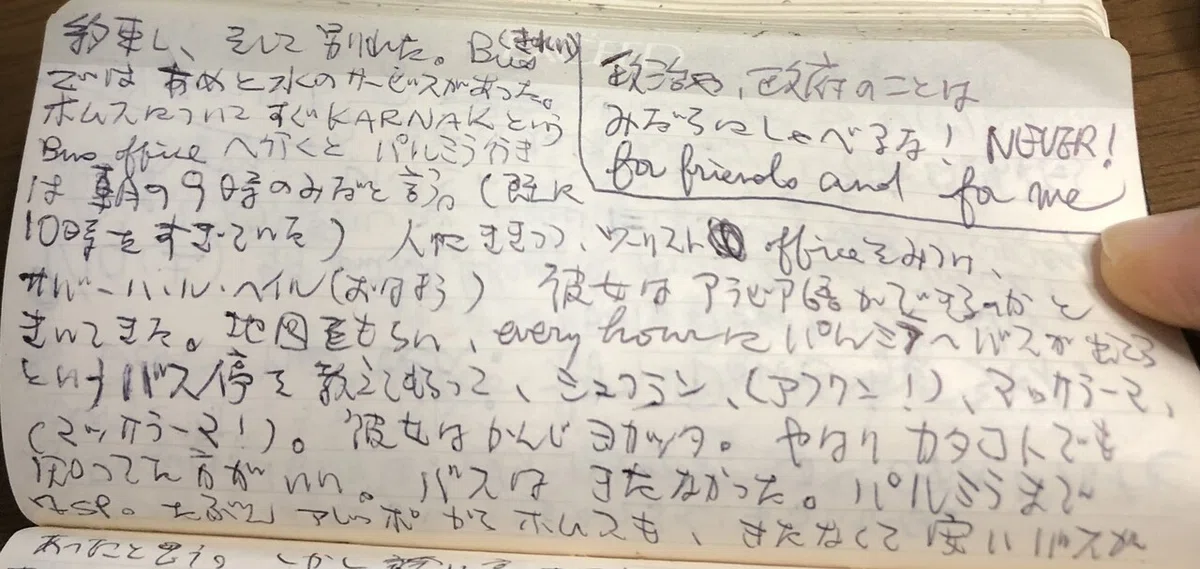 約束し、そして別れた。Bus(きれい)
ではあめと水のサービスがあった。
ホムスについてすぐKARNAKという
Bus officeへ行くとパルミラ行き
は朝の9時のみだと言う。(既に
10時をすぎている) 人にききつつ、ツーリスト officeをみつけ、
サバーハ・ル・ヘイル(おはよう) 彼女はアラビア語ができるのかと
きいてきた。地図をもらい、every hourにパルミラへバスがでてる
というバス停を教えてもらって、シュクラン、(アフワン!)、マッサラーマ、
(マッサラーマ!)。彼女はかんじヨカッタ。やはりカタコトでも
知ってた方がいい。バスはきたなかった。パルミラまで
たぶん アレッポからホムスも、きたなくて安いバスが
あったと思う。しかし
政治や、政府のことは
みだりにしゃべるな! NEVER!
for friends and for me